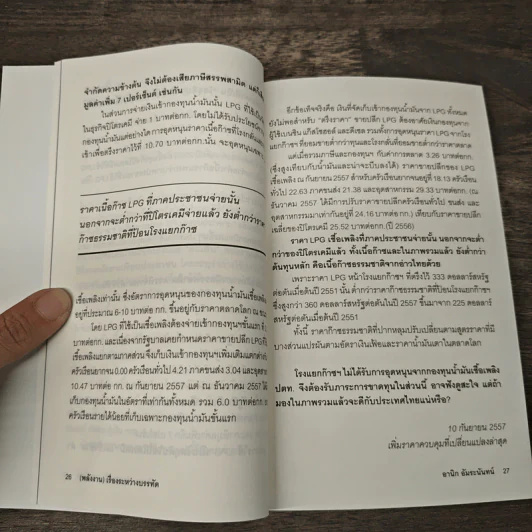 จำกัดความข้างต้น จึงไม่ต้องเสียภาษีสรรพสามิต แต่
มูลค่าเพิ่ม 7 เปอร์เซ็นต์ เช่นกัน
ในส่วนการจ่ายเงินเข้ากองทุนน้ำมันนั้น LPG ที่ใช้
ในธุรกิจปิโตรเคมี จ่าย 1 บาทต่อกก. โดยไม่ได้รับประโยชน์
กองทุนน้ำมันแต่อย่างใด การอุดหนุนราคาเนื้อก๊าซที่โรงกลั่น
เข้าเพื่อตรึงราคาไว้ที่ 10.70 บาทต่อกก.นั้น จะอุดหนุนเฉพาะ
ราคาเนื้อก๊าซ LPG ที่ภาคประชาชนจ่ายนั้น
นอกจากจะต่ำกว่าที่ปิโตรเคมีจ่ายแล้ว ยังต่ำกว่าราคา
ก๊าซธรรมชาติที่ป้อนโรงแยกก๊าซ
เชื้อเพลิงเท่านั้น ซึ่งอัตราการอุดหนุนของกองทุนน้ำมันเชื้อเพลิง
อยู่ที่ประมาณ 6-10 บาทต่อกก. ขึ้นอยู่กับราคาตลาดโลก ณ
โดย LPG ที่ใช้เป็นเชื้อเพลิงต้องจ่ายเข้ากองทุนฯขั้นแรก
บาทต่อกก. และเนื่องจากรัฐบาลเคยกำหนดราคาขายปลีก LPG
เชื้อเพลิงแยกตามภาคส่วนจึงเก็บเงินเข้ากองทุนฯเพิ่มเติมแตกต่าง
ครัวเรือนจาก 0.00 ครัวเรือนทั่วไป 4.21 ภาคขนส่ง 3.04 และอุตสา
10.47 บาทต่อ กก. ณ กันยายน 2557 แต่ ณ ธันวาคม 2557 ได้
เก็บกองทุนน้ำมันในอัตราที่เท่ากันทั้งหมด รวม 6.0 บาทต่อกก.
ครัวเรือนรายได้น้อยที่เก็บเฉพาะกองทุนน้ำมันขั้นแรก
26 (พลังงาน) เรื่องระหว่างบรรทัด
อีกข้อเท็จจริงคือ เงินที่จัดเก็บเข้ากองทุนน้ำมันจาก LPG ทั้งหมด
ยังไม่พอสำหรับ “ตรึงราคา” ขายปลีก LPG ต้องอาศัยเงินกองทุนจาก
ผู้ใช้เบนซิน แก๊สโซฮอล์ และดีเซล รวมทั้งการอุดหนุนราคา LPG จากโรง
แยกก๊าซ ที่ยอมขายต่ำกว่าทุนและโรงกลั่นที่ยอมขายต่ำกว่าราคาตลาด
แต่เมื่อรวมภาษีและกองทุนฯ กับค่าการตลาด 3.26 บาทต่อกก.
(ซึ่งสูงเทียบกับน้ำมันและน่าจะบีบลงได้) ราคาขายปลีกของ LPG
เชื้อเพลิง ณ กันยายน 2557 สำหรับครัวเรือนยากจนอยู่ที่ 18.13 ครัวเรือน
ทั่วไป 22.63 ภาคขนส่ง 21.38 และอุตสาหกรรม 29.33 บาทต่อกก. (ณ
ธันวาคม 2557 ได้มีการปรับราคาขายปลีกครัวเรือนทั่วไป ขนส่ง และ
อุตสาหกรรมมาเท่ากันอยู่ที่ 24.16 บาทต่อกก.) เทียบกับราคาขายปลีก
เฉลี่ยของปิโตรเคมี 25.52 บาทต่อกก. (ปี 2556)
ราคา LPG เชื้อเพลิงที่ภาคประชาชนจ่ายนั้น นอกจากจะต่ำ
กว่าของปิโตรเคมีแล้ว ทั้งเนื้อก๊าซและในภาพรวมแล้ว ยังต่ำกว่า
ต้นทุนหลัก คือเนื้อก๊าซธรรมชาติจากอ่าวไทยด้วย
เพราะราคา LPG หน้าโรงแยกก๊าซฯ ที่ตรึงไว้ที่ 333 ดอลลาร์สหรัฐ
ต่อตันเมื่อต้นปี 2551 นั้น ต่ำกว่าราคาก๊าซธรรมชาติที่ป้อนโรงแยกก๊าซฯ
ซึ่งสูงกว่า 360 ดอลลาร์สหรัฐต่อตันในปี 2557 ขึ้นมาจาก 225 ดอลลาร์
สหรัฐต่อตันเมื่อปี 2551
ทั้งนี้ ราคาก๊าซธรรมชาติที่ปากหลุมปรับเปลี่ยนตามสูตรราคาที่มี
บางส่วนแปรผันตามอัตราเงินเฟ้อและราคาน้ำมันเตาในตลาดโลก
โรงแยกก๊าซฯ ไม่ได้รับการอุดหนุนจากกองทุนน้ำมันเชื้อเพลิง
ปตท. จึงต้องรับภาระการขาดทุนในส่วนนี้ อาจฟังดูสะใจ แต่ถ้า
มองในภาพรวมแล้วจะดีกับประเทศไทยแน่หรือ?
10 กันยายน 2557
เพิ่มราคาควบคุมที่เปลี่ยนแปลงล่าสุด
อานิก อัมระนันทน์ 27